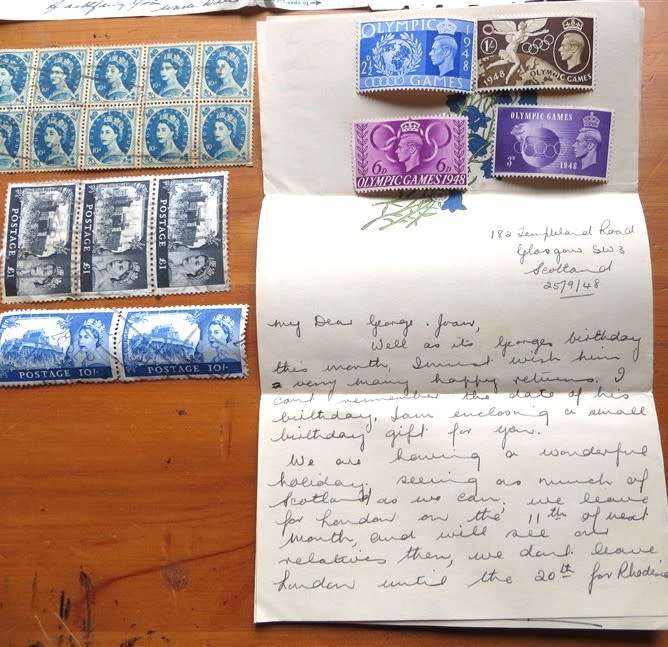 OLYMPIC 1948
2½D GAMES
1/- 1948 OLYMPIC GAMES
6D 6D
OLYMPIC GAMES 1948
OLYMPIC GAMES
3D 1948
POSTAGE £1
POSTAGE £1
POSTAGE £1
POSTAGE 10/-
POSTAGE 10/-
182 Templeland Road
Glasgow SW3
Scotland
25/9/48
My Dear George. Joan,
Well as its Georges birthday
this month, I must wish him
a very many happy returns. I
cant remember the date of his
birthday. I am enclosing a small
birthday gift for you.
We are having a wonderful
holiday, seeing as much of
Scotland, as we can, we leave
for London on the 11th of next
month, and will see our
relatives then, we dont leave
London until the 20th for Rhodesia